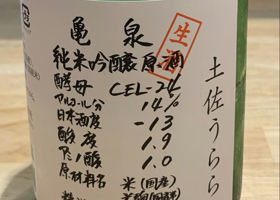 亀泉
生酒
純米吟醸原酒
酵母 CEL-24
アルコール分 14%
日本酒度 -13
酸度 1.9
アミノ酸 1.0
原材料名
米(国産)
土佐うらら